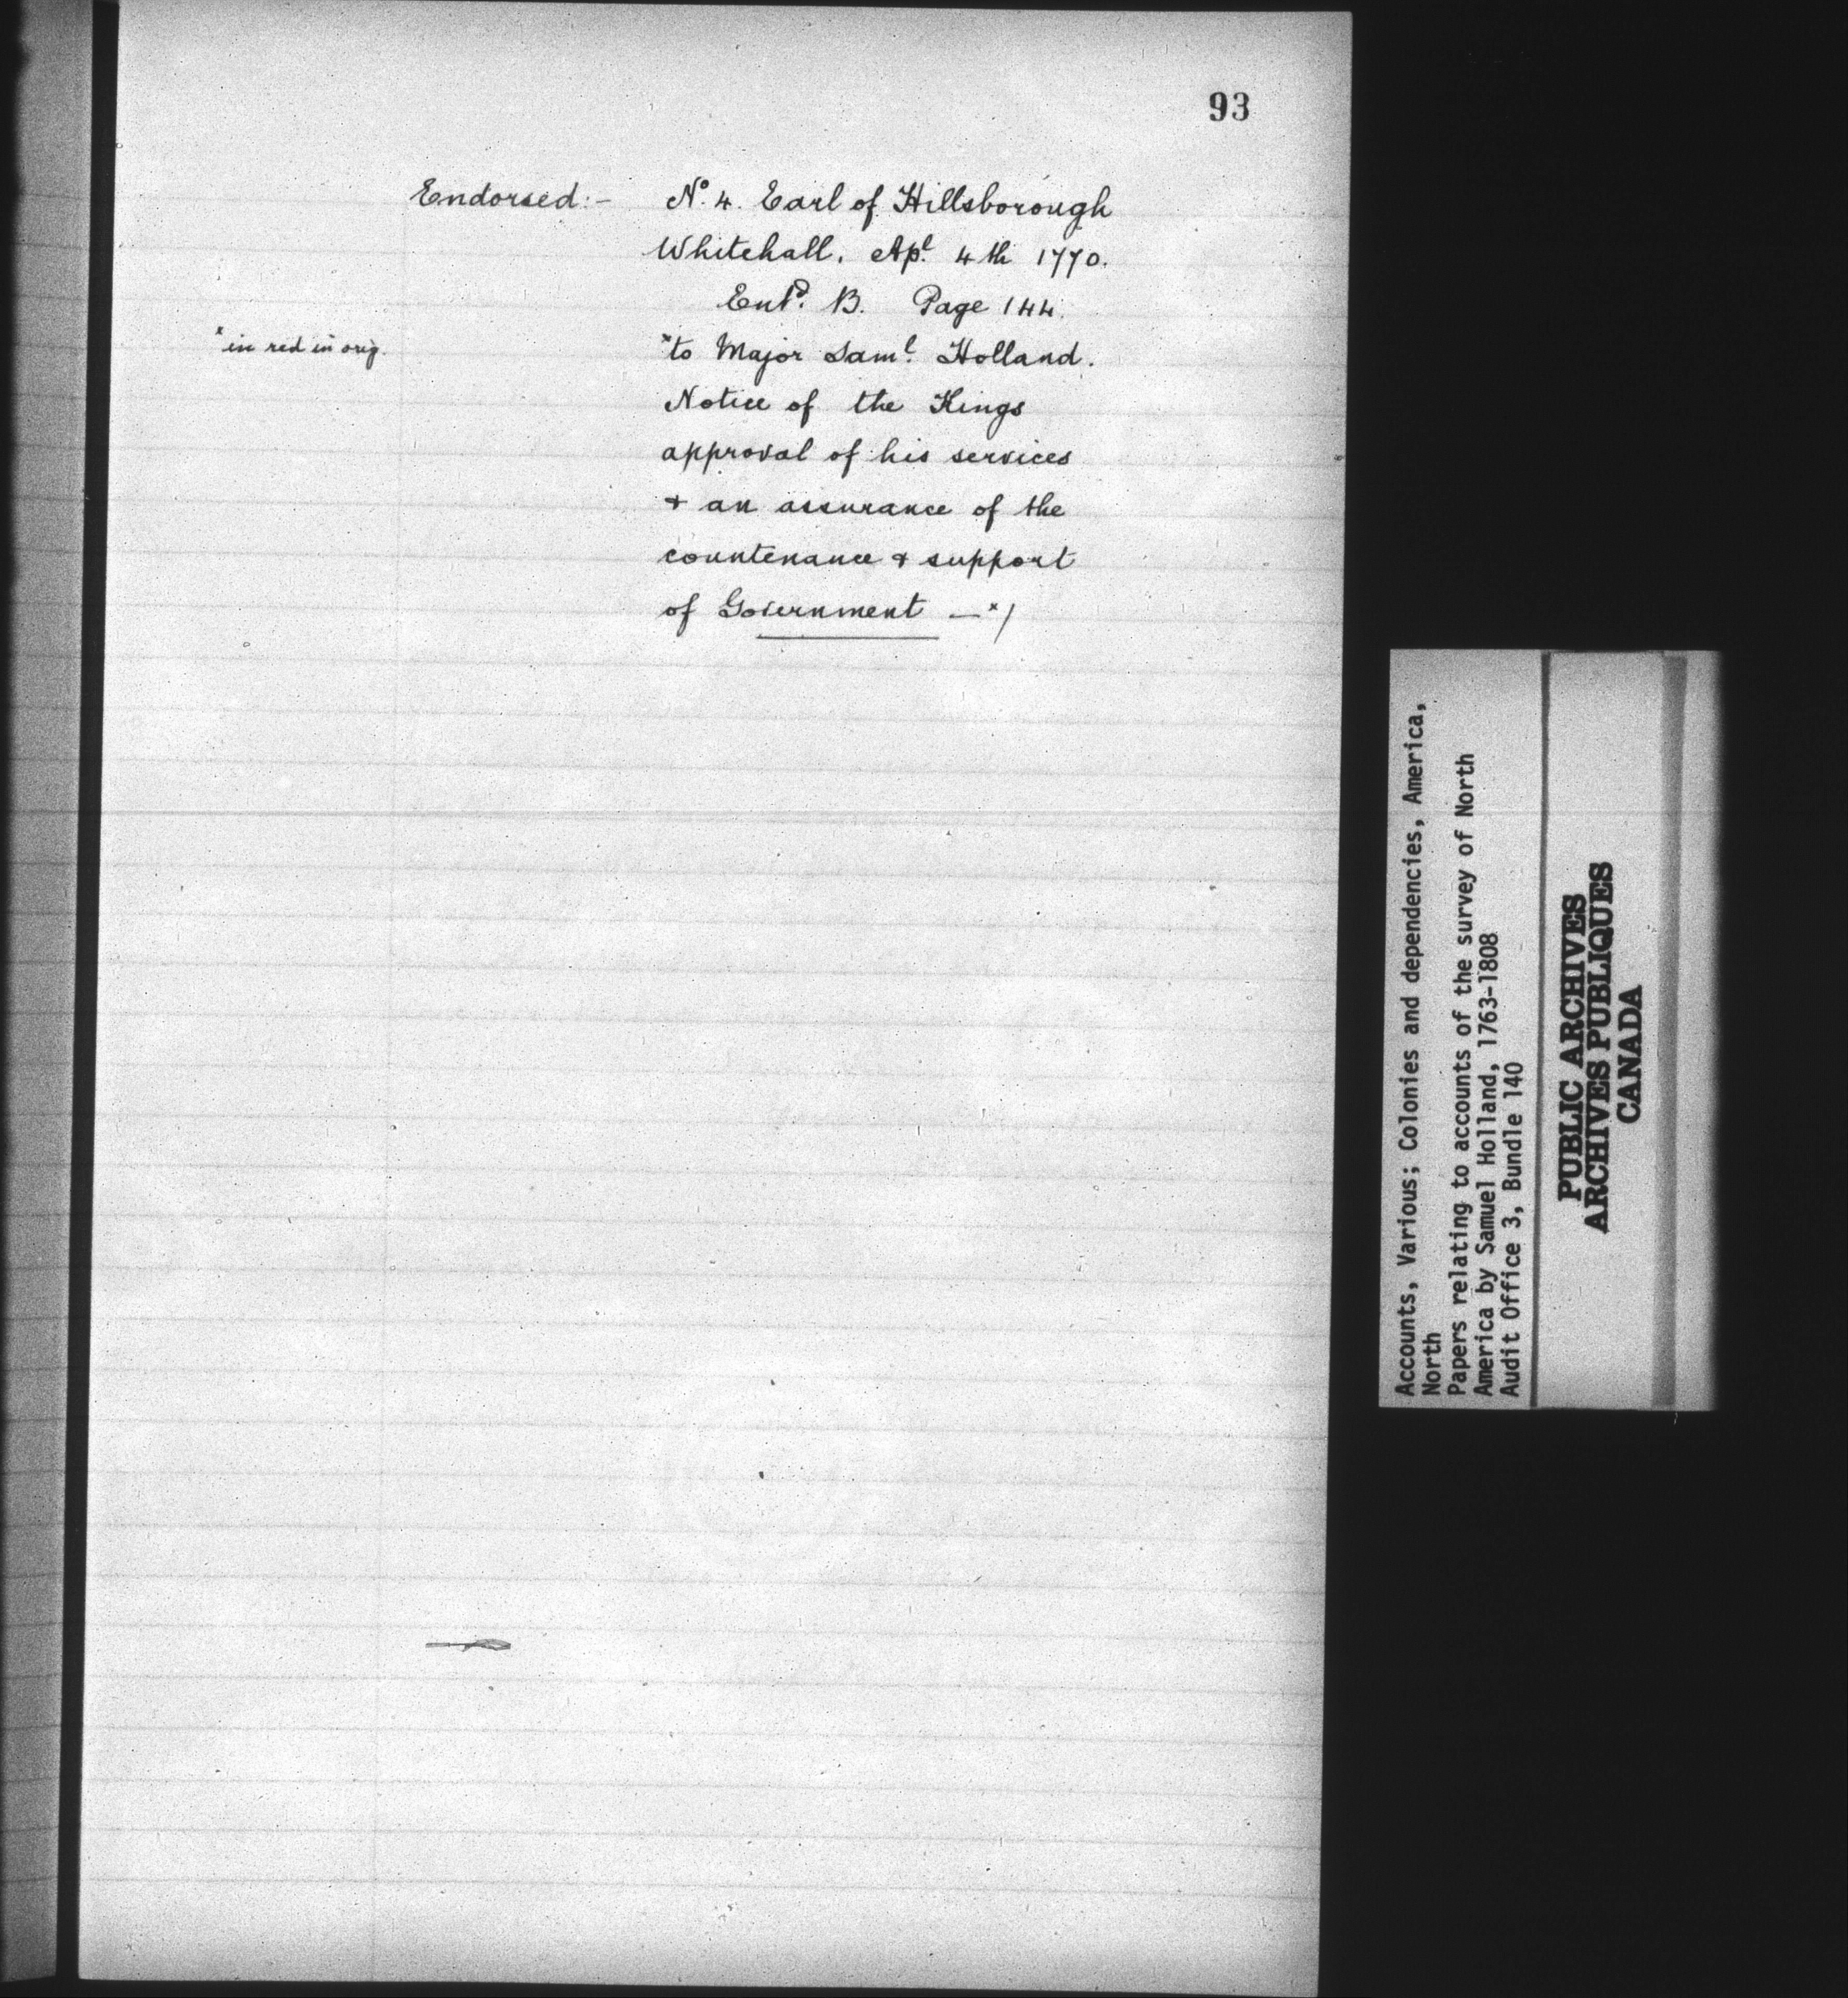 93
Endorsed:- Nº. 4. Earl of Hillsborough
Whitehall. Apl. 4th 1770.
Entd. B. Page 144.
*in red in orig.
*to Major Saml. Holland.
Notice of the Kings
approval of his services
& an assurance of the
countenance & support
of Government —*/
Accounts, Various; Colonies and dependencies, America,
North
Papers relating to accounts of the survey of North
America by Samuel Holland, 1763-1808
Audit Office 3, Bundle 140
PUBLIC ARCHIVES
ARCHIVES PUBLIQUES
CANADA